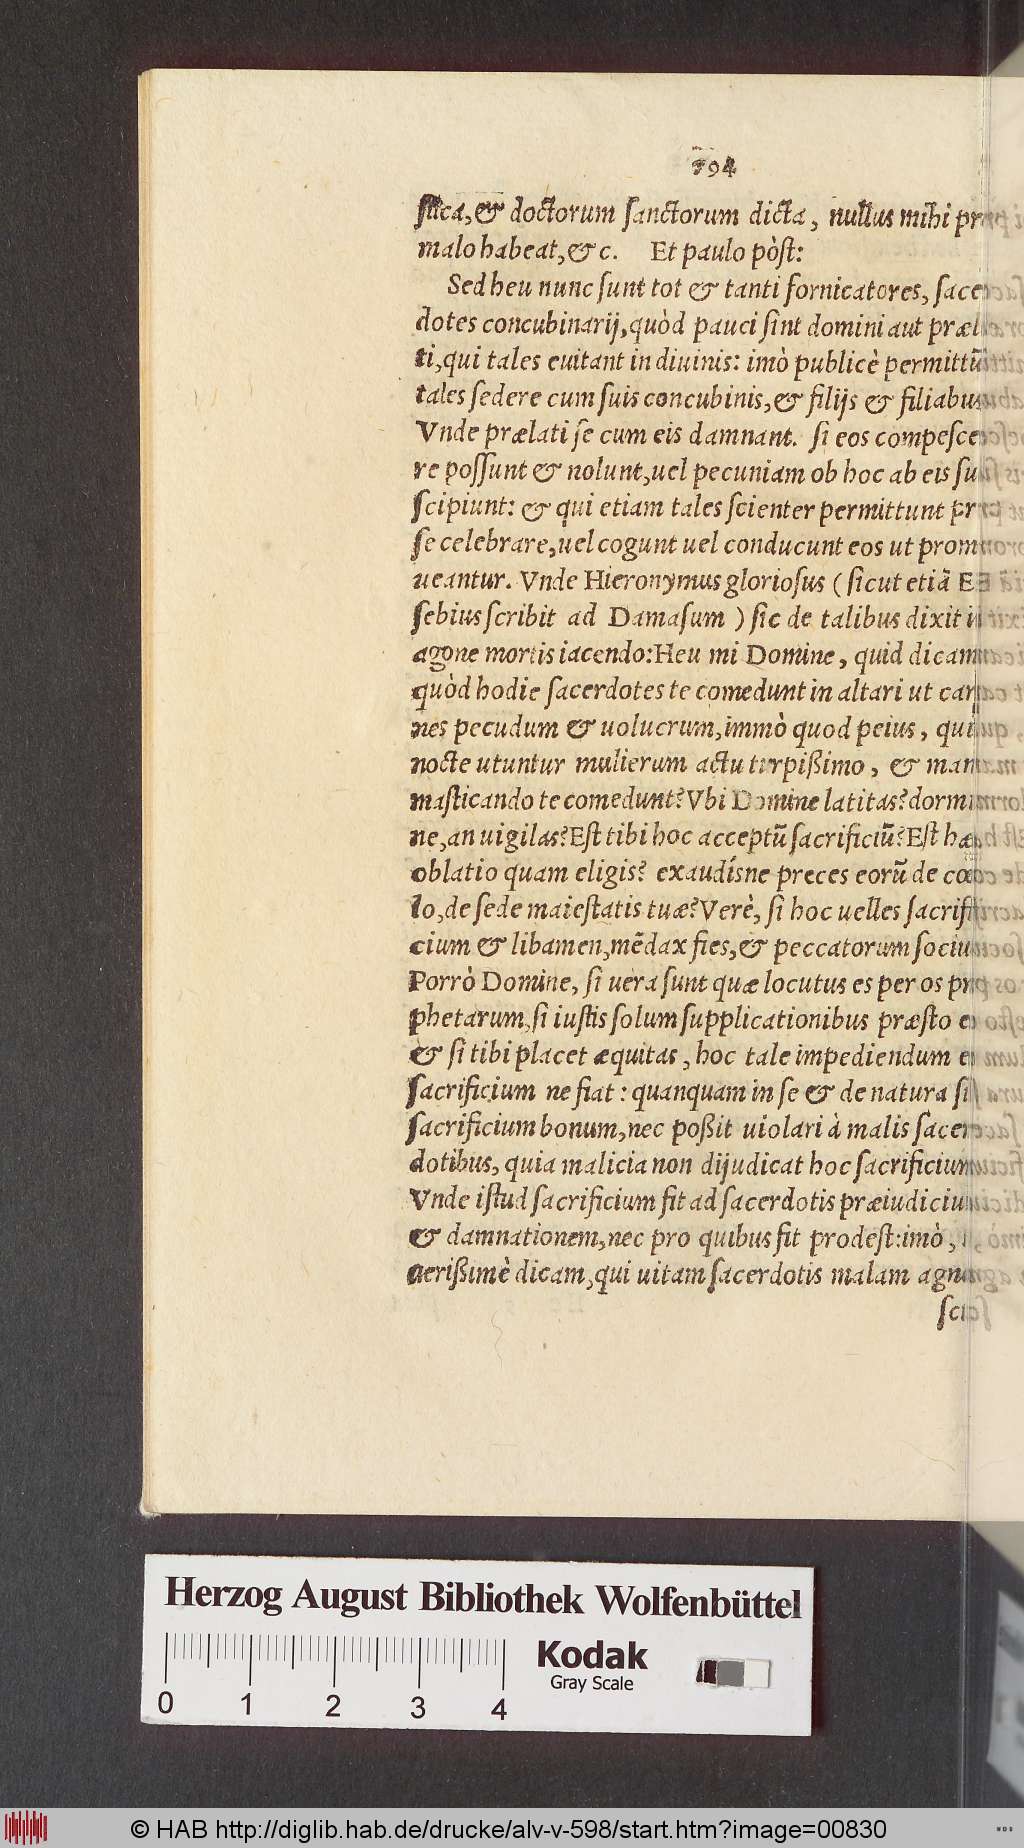 794
stica, & doctorum sanctorum dicta, nullus mihi pro
malo habeat, & c. Et paulo pòst:
Sed heu nunc sunt tot & tanti fornicatores, sacer
dotes concubinarij, quòd pauci sint domini aut præla
ti, qui tales euitant in diuinis: imò publicè permittũt
tales sedere cum suis concubinis, & filijs & filiabus.
Vnde prælati se cum eis damnant. si eos compesce
re possunt & nolunt, uel pecuniam ob hoc ab eis su
scipiunt: & qui etiam tales scienter permittunt pro
se celebrare, uel cogunt uel conducunt eos ut promo
ueantur. Vnde Hieronymus gloriosus (sicut etiã Eu
sebius scribit ad Damasum) sic de talibus dixit in
agone mortis iacendo: Heu mi Domine, quid dicam
quòd hodie sacerdotes te comedunt in altari ut car
nes pecudum & uolucrum, immò quod peius, qui
nocte utuntur mulierum actu turpißimo, & mane
masticando te comedunt? Vbi Domine latitas? dormis
ne, an uigilas? Est tibi hoc acceptũ sacrificiũ? Est hæc
oblatio quam eligis? exaudísne preces eorũ de cœ
lo, de sede maiestatis tuæ? Verè, si hoc uelles sacrifi
cium & libamen, mẽdax fies, & peccatorum socius.
Porrò Domine, si uera sunt quæ locutus es per os pro
phetarum, si iustis solum supplicationibus præsto es
& si tibi placet æquitas, hoc tale impediendum est
sacrificium ne fiat: quanquam in se & de natura sit
sacrificium bonum, nec poßit uiolari à malis sacer
dotibus, quia malicia non dijudicat hoc sacrificium.
Vnde istud sacrificium fit ad sacerdotis præiudicium
& damnationem, nec pro quibus fit prodest: imò,
uerißimè dicam, qui uitam sacerdotis malam agno
scit
Herzog August Bibliothek Wolfenbüttel
Kodak
Gray Scale
0 1 2 3 4
© HAB http://diglib.hab.de/drucke/alv-v-598/start.htm?image=00830